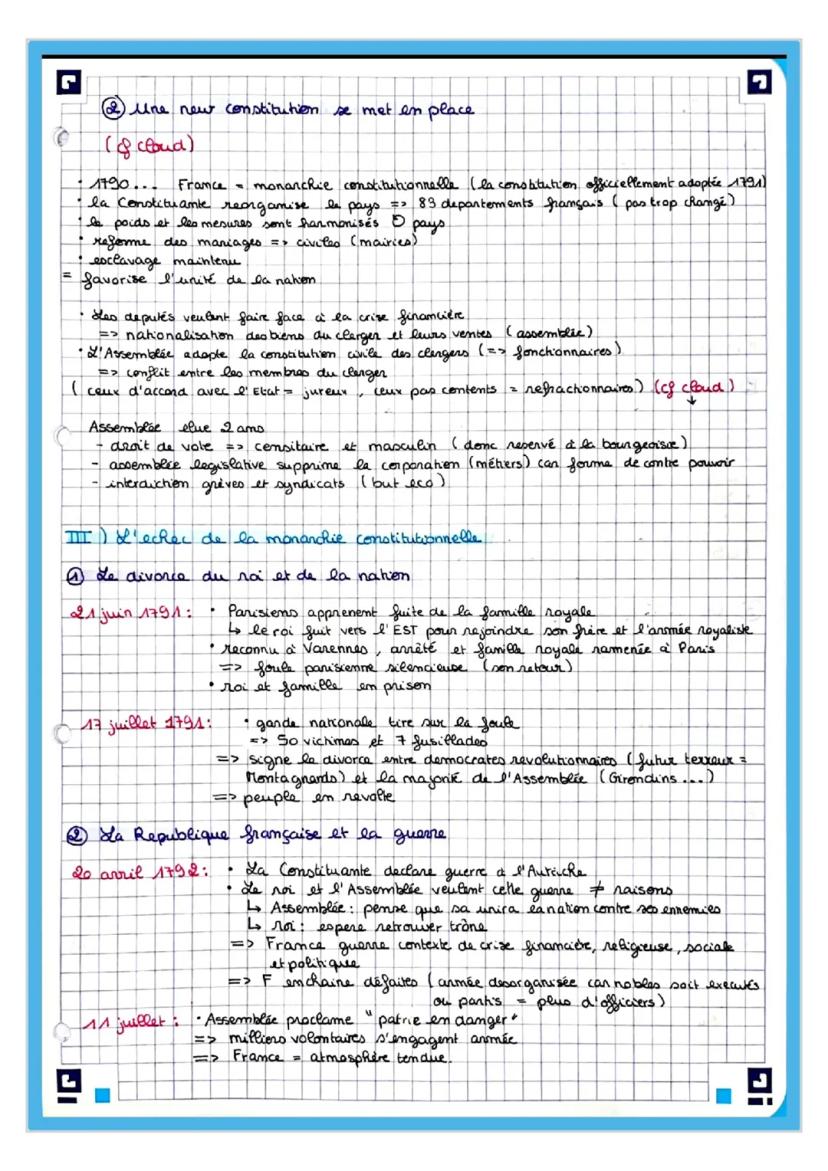 ② Une new constitution se met en place
(cf cloud)
• 1790... France = monarchie constitutionnelle (la constitution officiellement adoptée 1791)
• la Constituante reorganise le pays => 83 departements français (pas trop changé)
• le poids et les mesures sont harmonisés pays
• reforme des mariages => civiles (mairies)
• esclavage maintenu
= favorise l'unité de la nation
• Les deputés veulent faire face à la crise financière
=> nationalisation des biens du clerger et leurs ventes (assemblée)
• L'Assemblée adopte la constitution civile des clergers (=> fonctionnaires)
=> conflit entre les membres du clerger
(ceux d'accord avec l'Etat = jureux, ceux pas contents = refractionnaires) (cf cloud)
↓
Assemblée elue 2 ans
- droit de vote => censitaire et masculin (donc reservé à la bourgeoisie)
- assemblée legislative supprime la corporation (métiers) car forme de contre pouvoir
- interdiction grèves et syndicats (but eco)
III) L'echec de la monarchie constitutionnelle
① Le divorce du roi et de la nation
21 juin 1791: • Parisiens apprenent fuite de la famille royale
↳ le roi fuit vers l'EST pour rejoindre son frère et l'armée royaliste
• reconnu à Varennes, arrêté et famille royale ramenée à Paris
=> foule parisienne silencieuse (son retour)
• roi et famille en prison
17 juillet 1791: • garde nationale tire sur la foule
=> 50 victimes et 7 fusillades
=> signe le divorce entre democrates revolutionnaires (futur terreur =
Montagnards) et la majorité de l'Assemblée (Girondins...)
=> peuple en revolte
② La Republique française et la guerre
20 avril 1792: • La Constituante declare guerre à l'Autriche
• Le roi et l'Assemblée veulent cette guerre ≠ raisons
↳ Assemblée: pense que sa unira la nation contre ses ennemies
↳ roi: espere retrouver trône
=> France guerre contexte de crise financière, religieuse, sociale
et politique
=> F enchaine défaites (armée desorganisée car nobles soit executés
ou partis = plus d'officiers)
11 juillet: • Assemblée proclame "patrie en danger"
=> milliers volontaires s'engagent armée
=> France = atmosphère tendue.